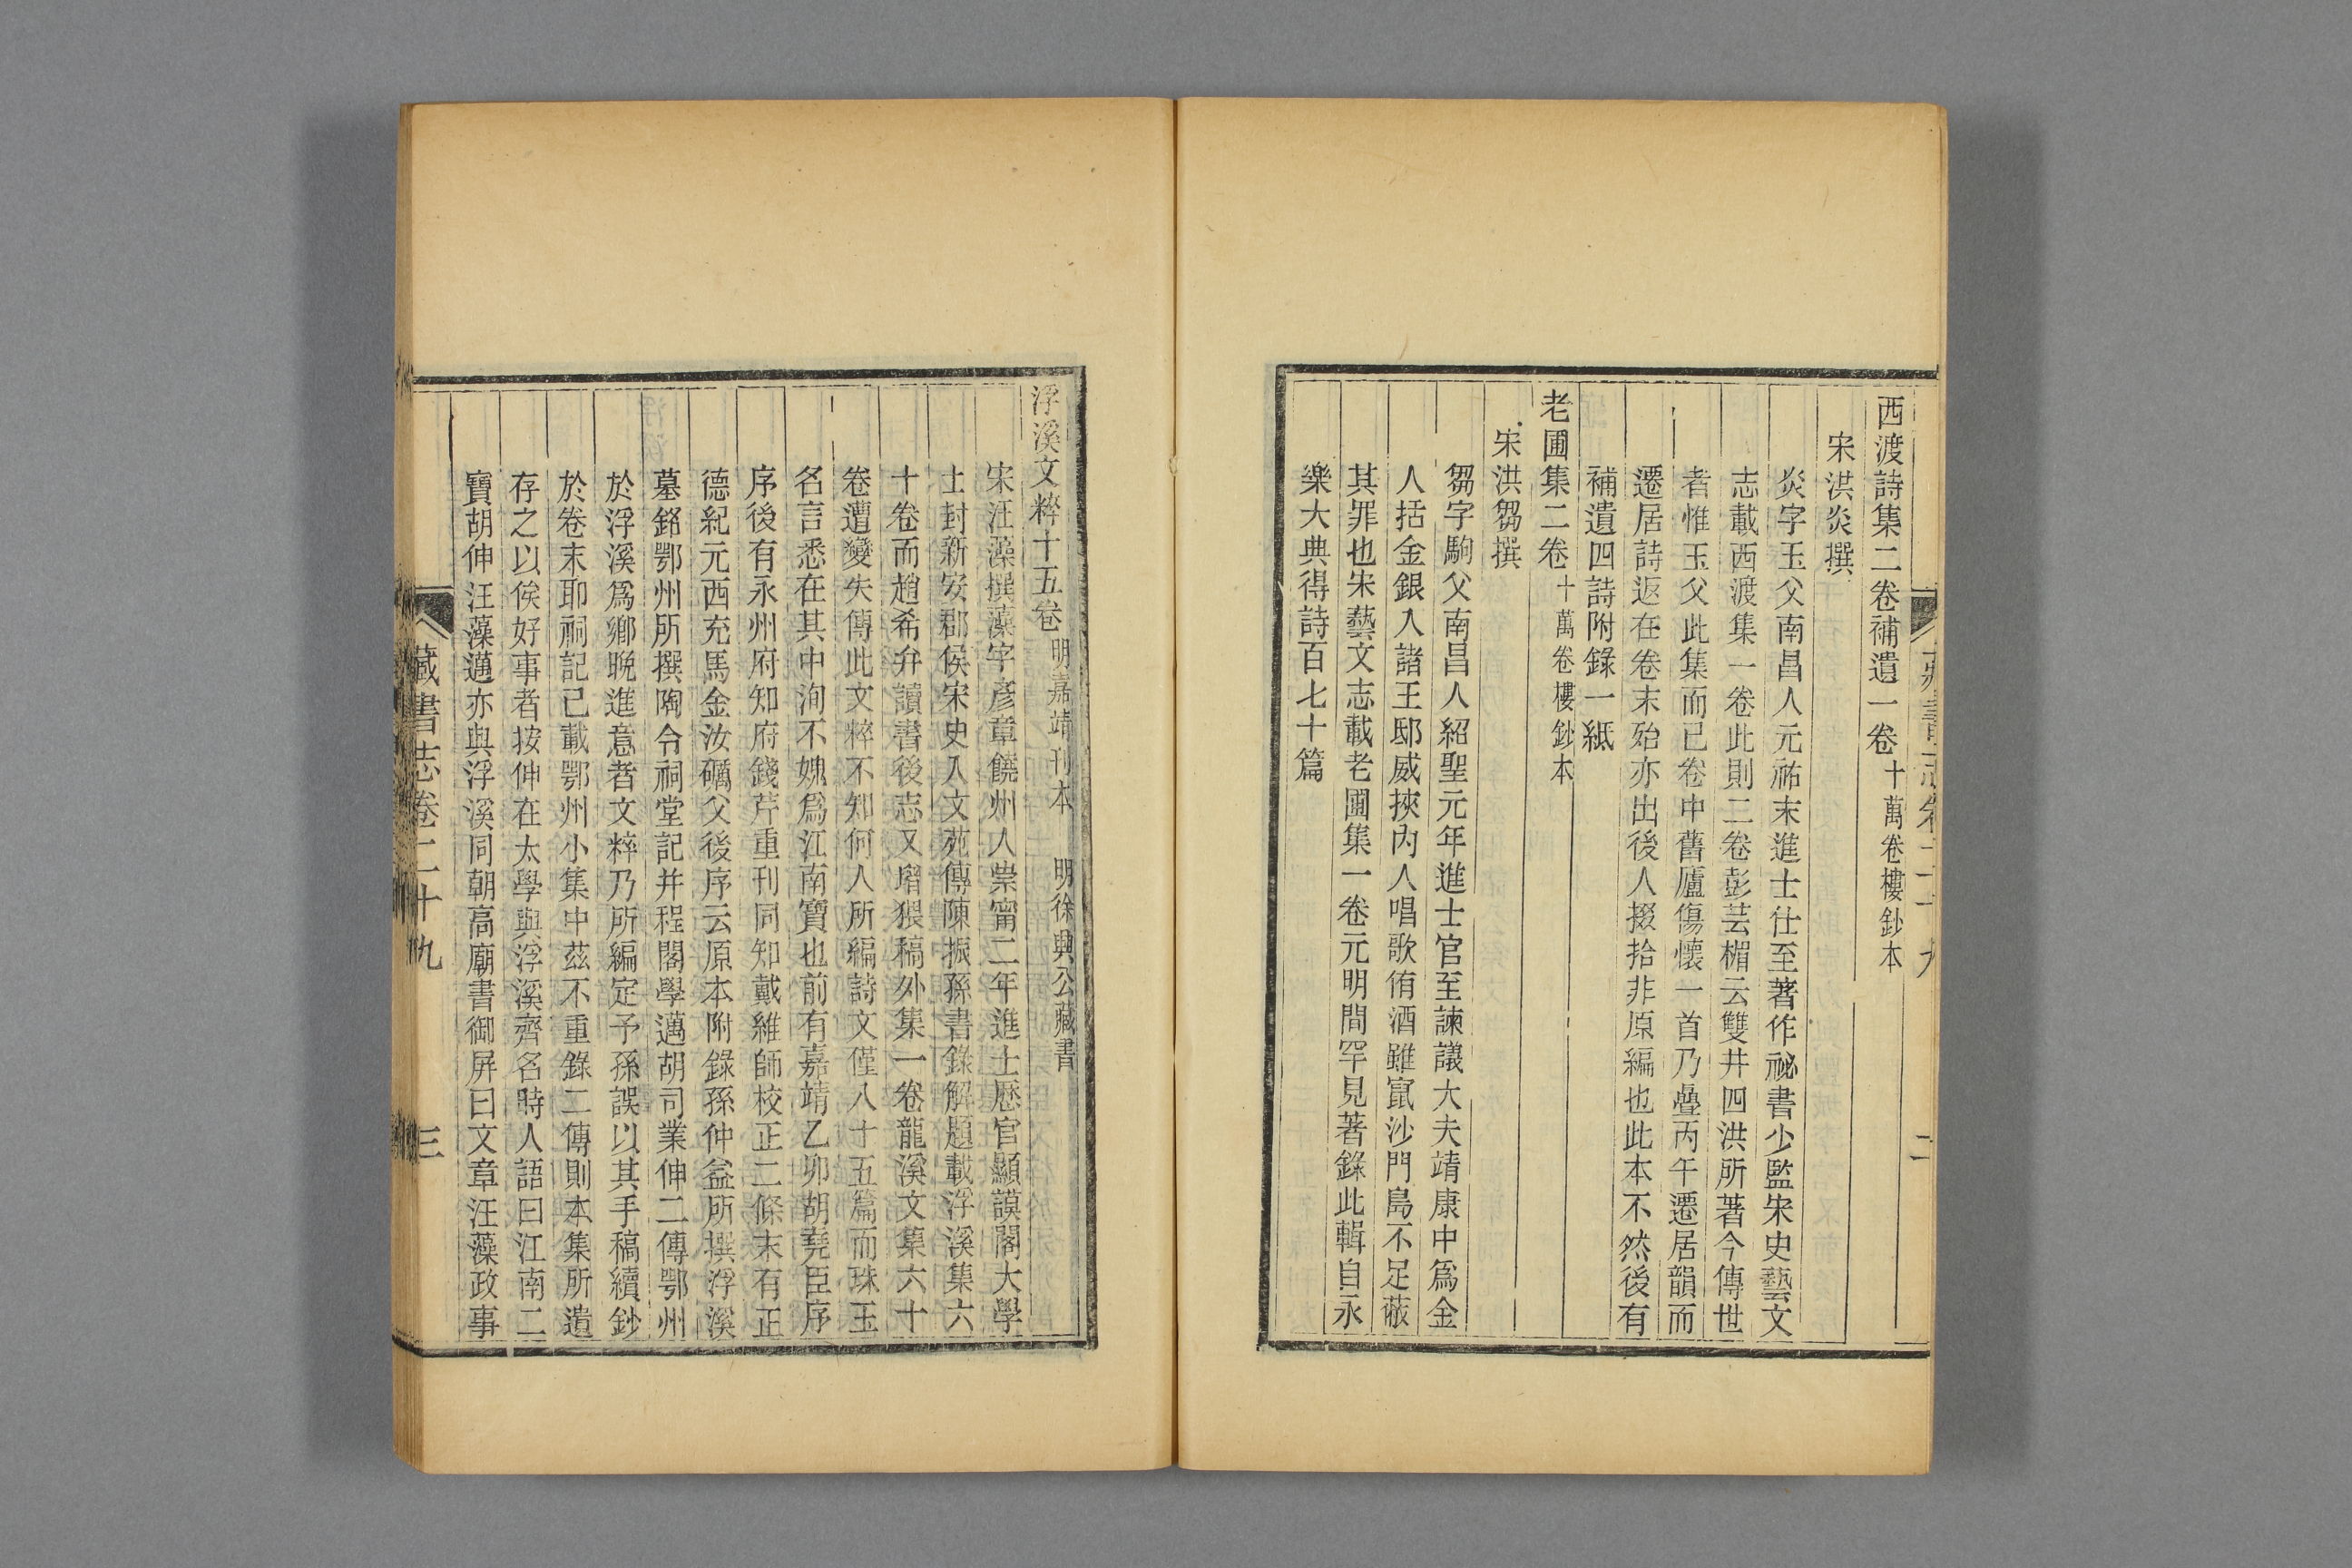 西渡詩集二卷補遺一卷十萬卷樓鈔本
宋洪炎撰
炎字玉父南昌人元祐末進士仕至著作祕書少監宋史藝文
志載西渡集一卷此則二卷彭芸楣云雙井四洪所著今傳世
者惟玉父此集而已卷中舊廬傷懷一首乃疊丙午遷居韻而
遷居詩返在卷末殆亦出後人掇拾非原編也此本不然後有
補遺四詩附錄一紙
老圃集二卷十萬卷樓鈔本
宋洪芻撰
芻字駒父南昌人紹聖元年進士官至諫議大夫靖康中爲金
人括金銀入諸王邸威挾內人唱歌侑酒雖竄沙門島不足蔽
其罪也宋藝文志載老圃集一卷元明間罕見著錄此輯自永
樂大典得詩百七十篇
浮溪文粹十五卷明嘉靖刊本 明徐興公藏書
宋汪藻撰藻字彥章饒州人崇甯二年進士歷官顯謨閣大學
士封新安郡侯宋史入文苑傳陳振孫書錄解題載浮溪集六
十卷而趙希弁讀書後志又增猥稿外集一卷龍溪文集六十
卷遭變失傳此文粹不知何人所編詩文僅八十五篇而珠玉
名言悉在其中洵不媿爲江南寶也前有嘉靖乙卯胡堯臣序
序後有永州府知府錢芹重刊同知戴維師校正二條末有正
德紀元西充馬金汝礪父後序云原本附錄孫仲益所撰浮溪
墓銘鄂州所撰陶令祠堂記并程閣學邁胡司業伸二傳鄂州
於浮溪爲鄉晚進意者文粹乃所編定予孫誤以其手稿續鈔
於卷末耶祠記已載鄂州小集中茲不重錄二傳則本集所遺
存之以俟好事者按伸在太學與浮溪齊名時人語曰江南二
寶胡伸汪藻邁亦與浮溪同朝高廟書御屏曰文章汪藻政事
藏書志卷二十九 三